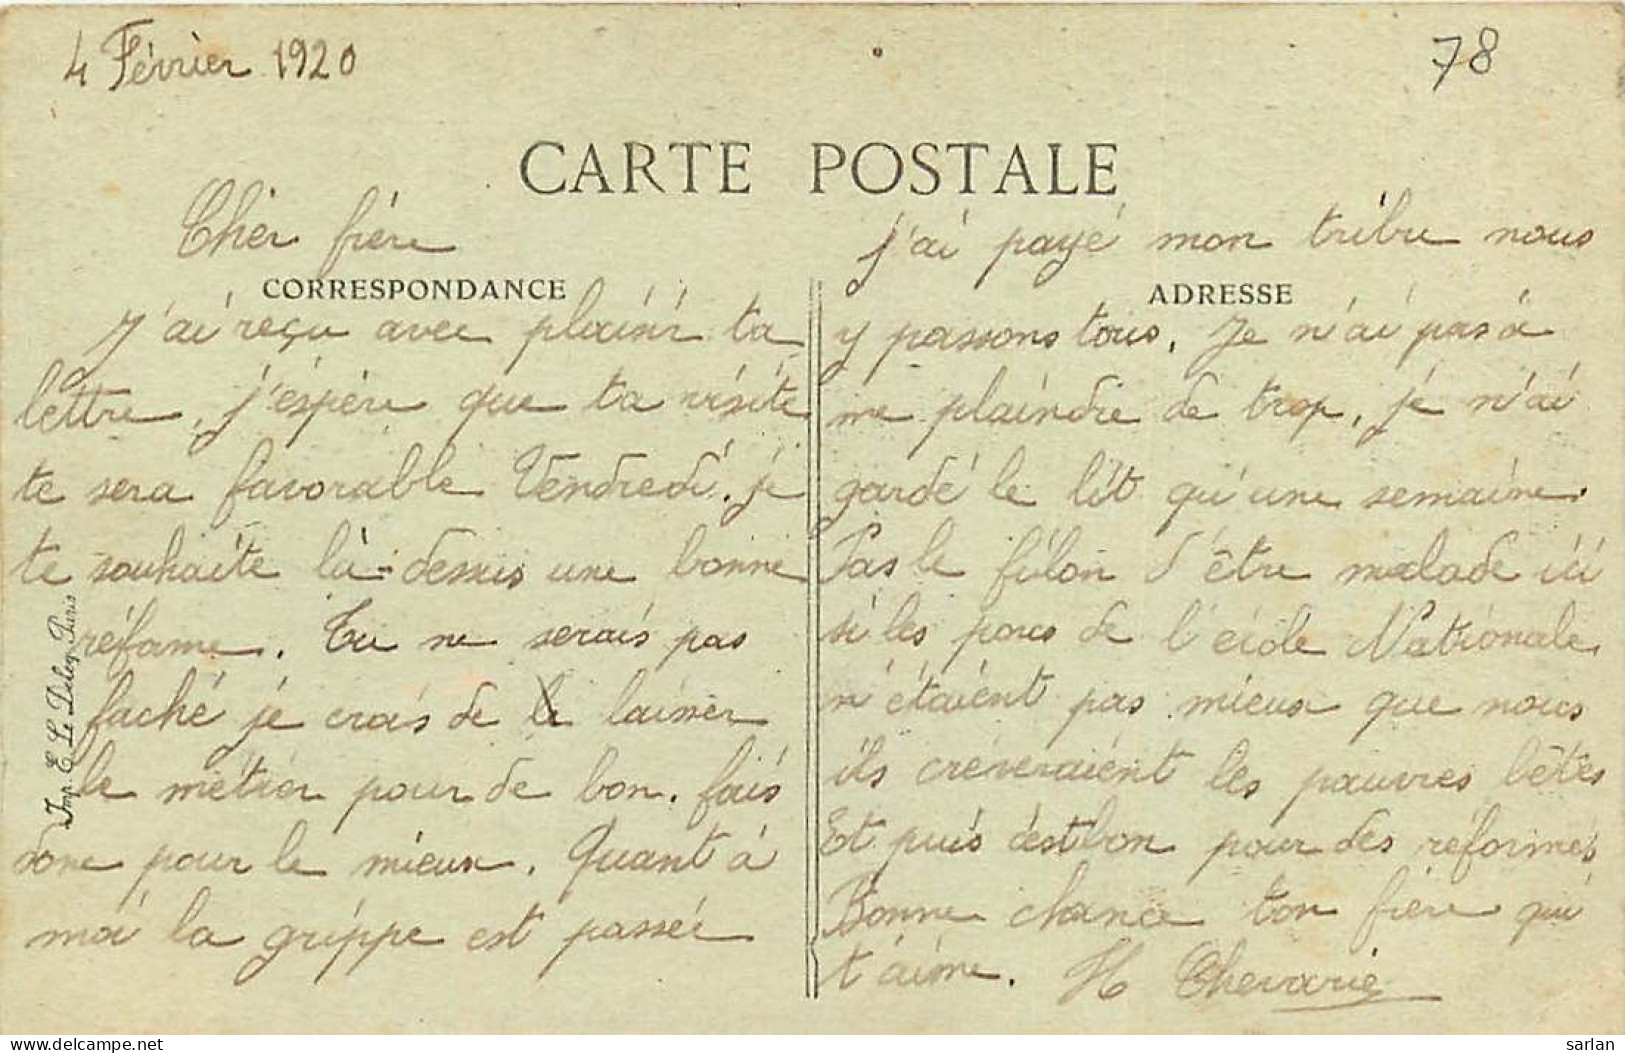 4 Février 1920
78
CARTE POSTALE
Cher frère
CORRESPONDANCE
J'ai reçu avec plaisir ta
lettre, j'espère que ta visite
te sera favorable Vendredi. je
te souhaite là-dessus une bonne
réforme. Tu ne serais pas
faché je crois de laisser
le métier pour de bon. fais
donc pour le mieux. Quant à
moi la grippe est passée
j'ai payé mon tribu nous
ADRESSE
y passons tous. Je n'ai pas à
me plaindre de trop, je n'ai
gardé le lit qu'une semaine.
Pas le filon d'être malade ici
si les porcs de l'école Nationale
n'étaient pas mieux que nous
ils crèveraient les pauvres bêtes
Et puis c'est bon pour des réformés
Bonne chance ton frère qui
t'aime. H Chevarie
Imp. E. Le Deley, Paris
https://www.delcampe.net
sarlan